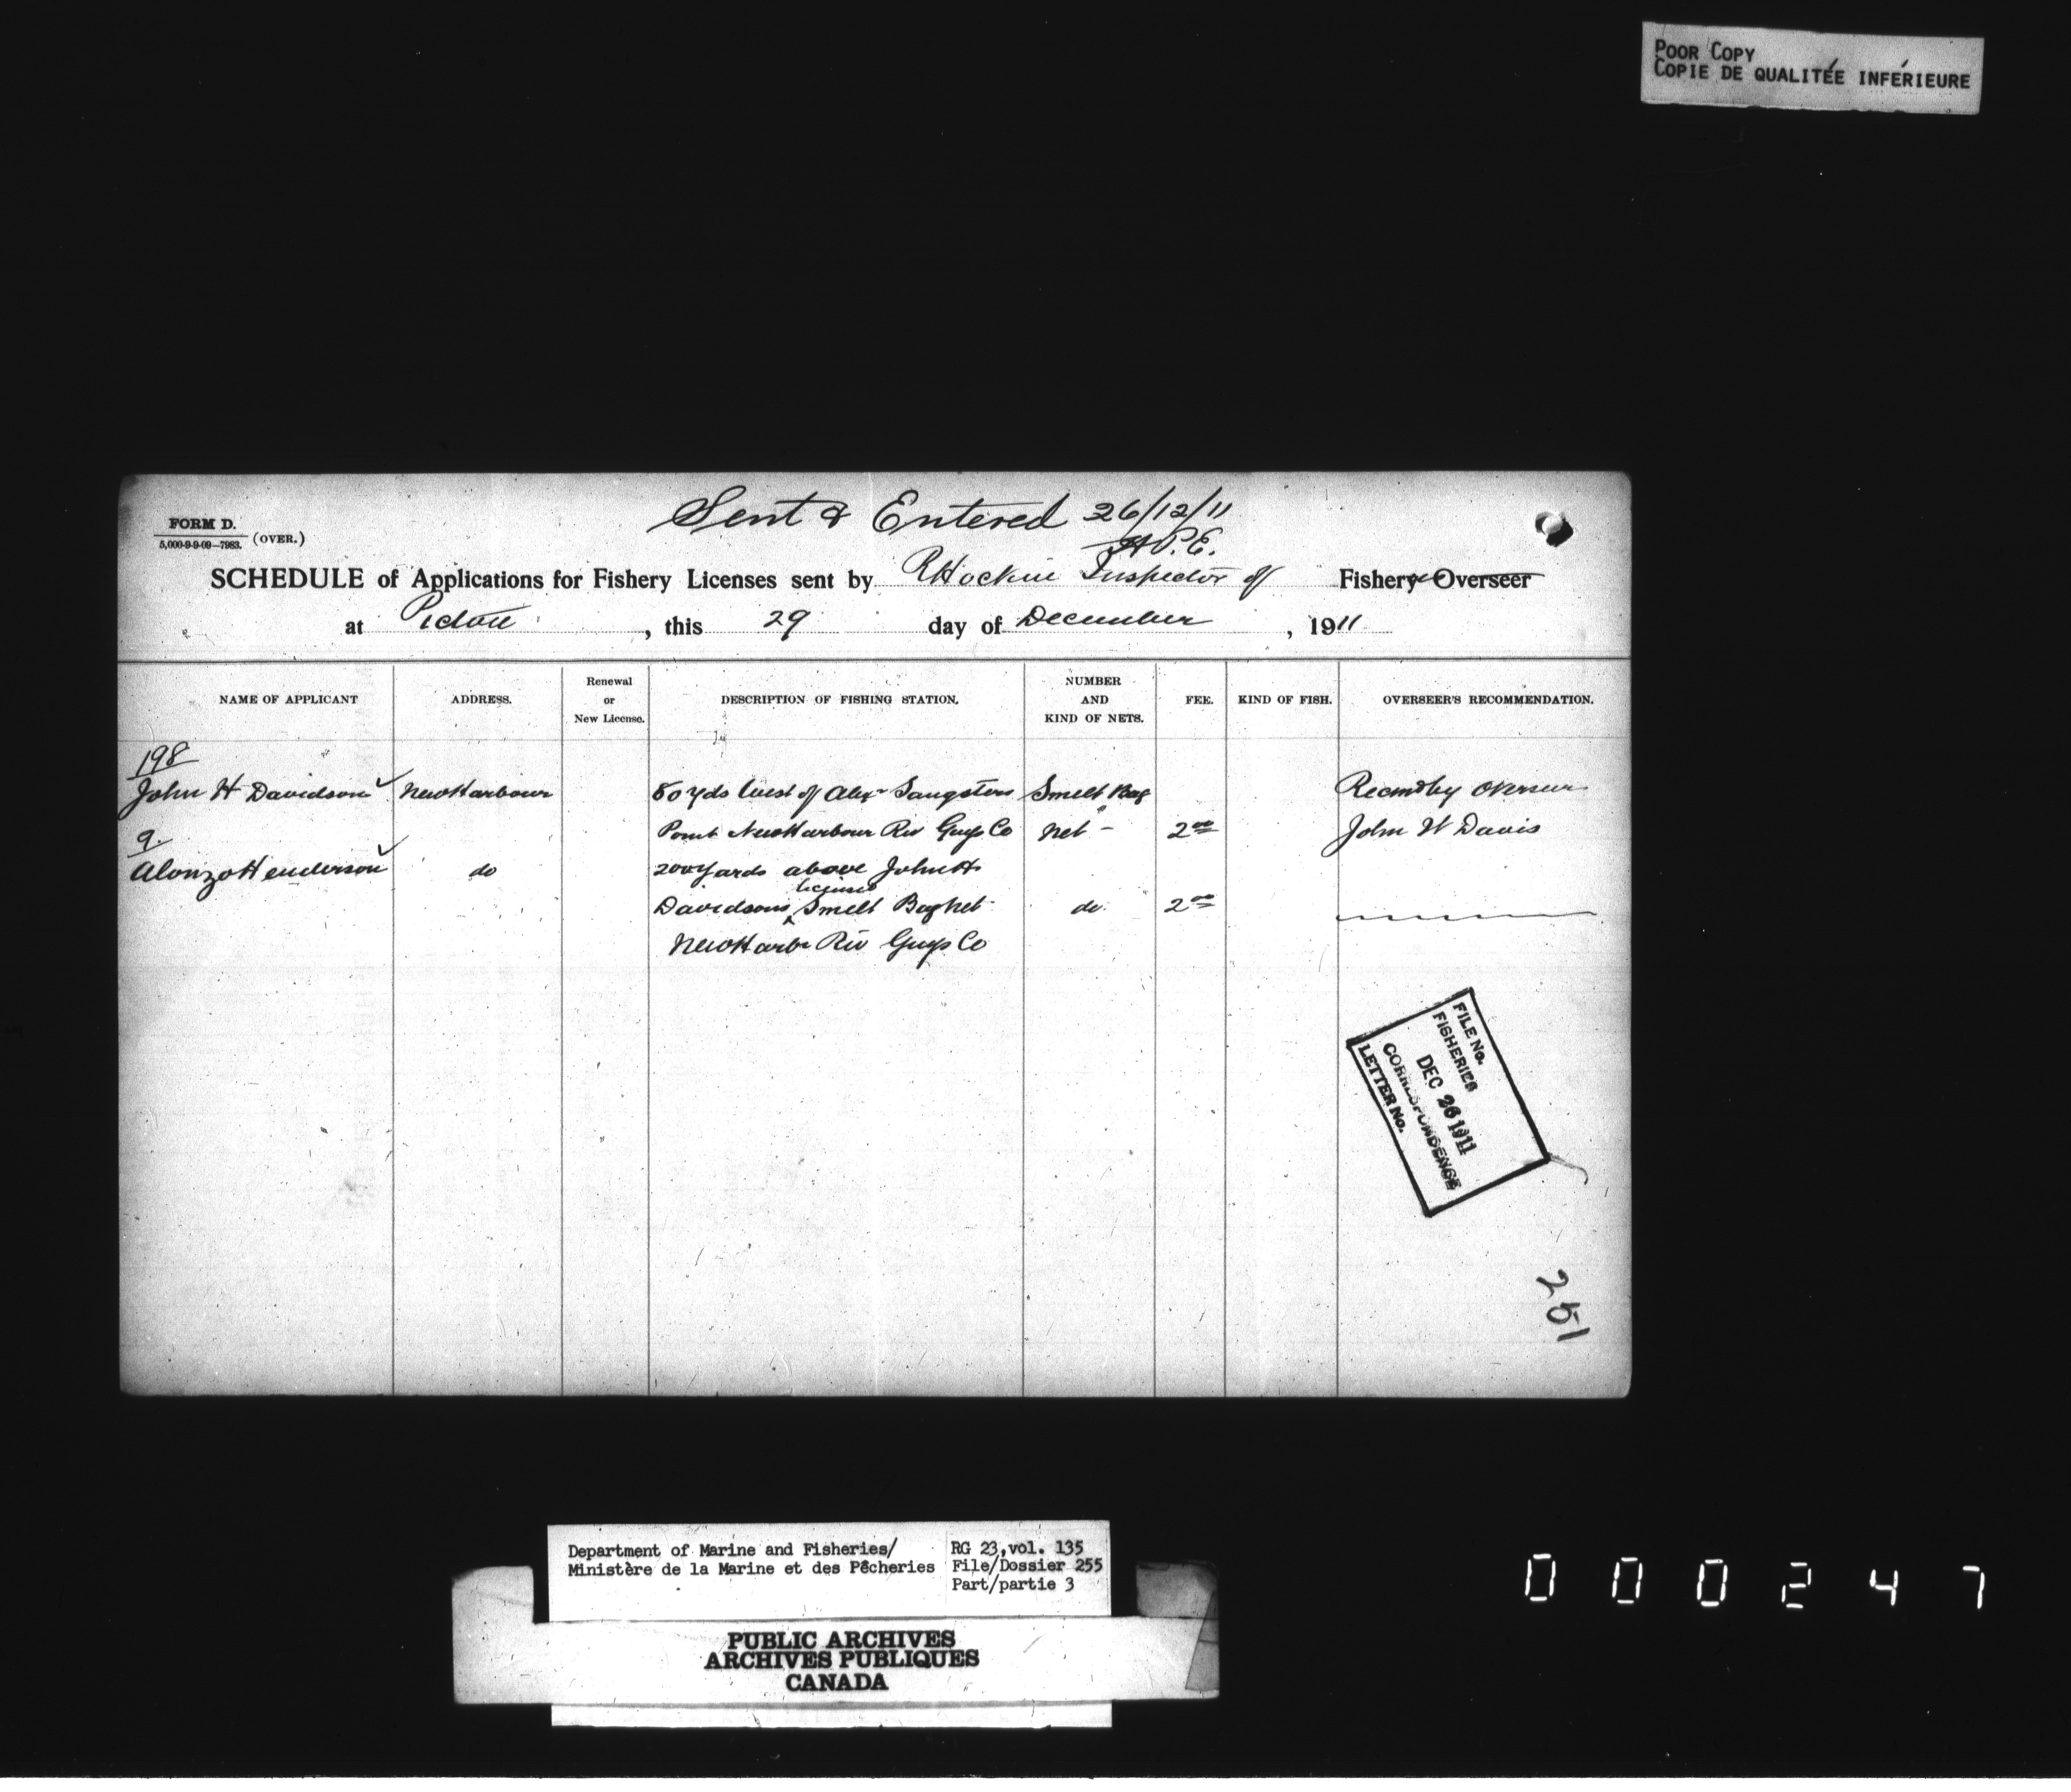 POOR COPY
COPIE DE QUALITÉE INFÉRIEURE
Sent & Entered 26/12/11
P.E.
FORM D.
5,000-9-9-09—7983.
(OVER.)
SCHEDULE of Applications for Fishery Licenses sent by R Hockin Inspector of Fishery Overseer
at Pictou, this 29 day of December, 1911
NAME OF APPLICANT
ADDRESS.
Renewal
or
New License.
DESCRIPTION OF FISHING STATION.
NUMBER
AND
KIND OF NETS.
FEE.
KIND OF FISH.
OVERSEER'S RECOMMENDATION.
198
John H Davidson New Harbour 80 yds West of Alexr Sangsters Smelt Bag Recmd by Overseer
Point New Harbour Riv Guys Co Net - 2.00 John W Davis
9.
Alonzo Henderson do 200 yards above John H
Davidsons licensed Smelt Bag net do 2.00
New Harbr Riv Guys Co
FILE No.
FISHERIES
DEC 26 1911
CORRESPONDENCE
LETTER No.
251
Department of Marine and Fisheries/
Ministère de la Marine et des Pêcheries
RG 23, vol. 135
File/Dossier 255
Part/partie 3
PUBLIC ARCHIVES
ARCHIVES PUBLIQUES
CANADA
000247